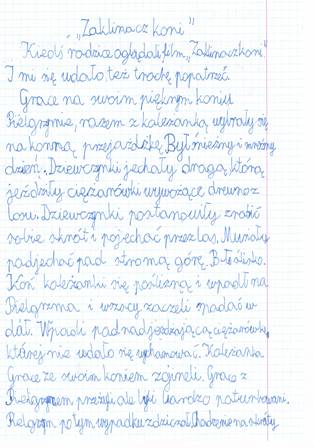 „Zaklinacz koni"
Kiedyś rodzice oglądali film „Zaklinacz koni".
I mi się udało też trochę popatrzeć.
Grace na swoim pięknym koniu
Pielgrzymie, razem z koleżanką, wybrały się
na konną przejażdżkę. Był śnieżny i mroźny
dzień. Dziewczynki jechały drogą, którą
jeździły ciężarówki wywożące drewno z
lasu. Dziewczynki postanowiły zrobić
sobie skrót i pojechać przez las. Musiały
podjechać pod stromą górę. Było ślisko.
Koń koleżanki się poślizną i wpadł na
Pielgrzyma i wszyscy zaczeli spadać w
dół. Wpadli pod nadjeżdżającą ciężarówkę,
której nie udało się wyhamować. Koleżanka
Grace ze swoim koniem zgineli. Grace z
Pielgrzymem przeżyli ale byli bardzo poturbowani.
Pielgrzym po tym wypadku zdziczał.